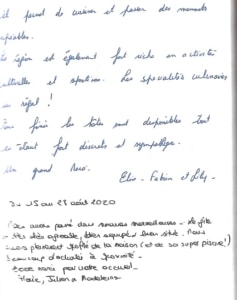 il permet de cuisiner et passer des moments
agréables.
La région est également fort riche en activités
culturelles et sportives. Les spécialités culinaires
un régal !
sont disponibles tout
en étant fort discrets et sympathiques.
Un grand merci.
Elise - Fabien et Lily.
Du 25 au 28 août 2020
Nous avons passé deux semaines merveilleuses - Le gîte
est très agréable, bien équipé, bien situé. Nous
avons pleinement profité de la maison (et de sa super piscine !)
Beaucoup d'activités à proximité.
Encore merci pour votre accueil.
Marie, Julien &